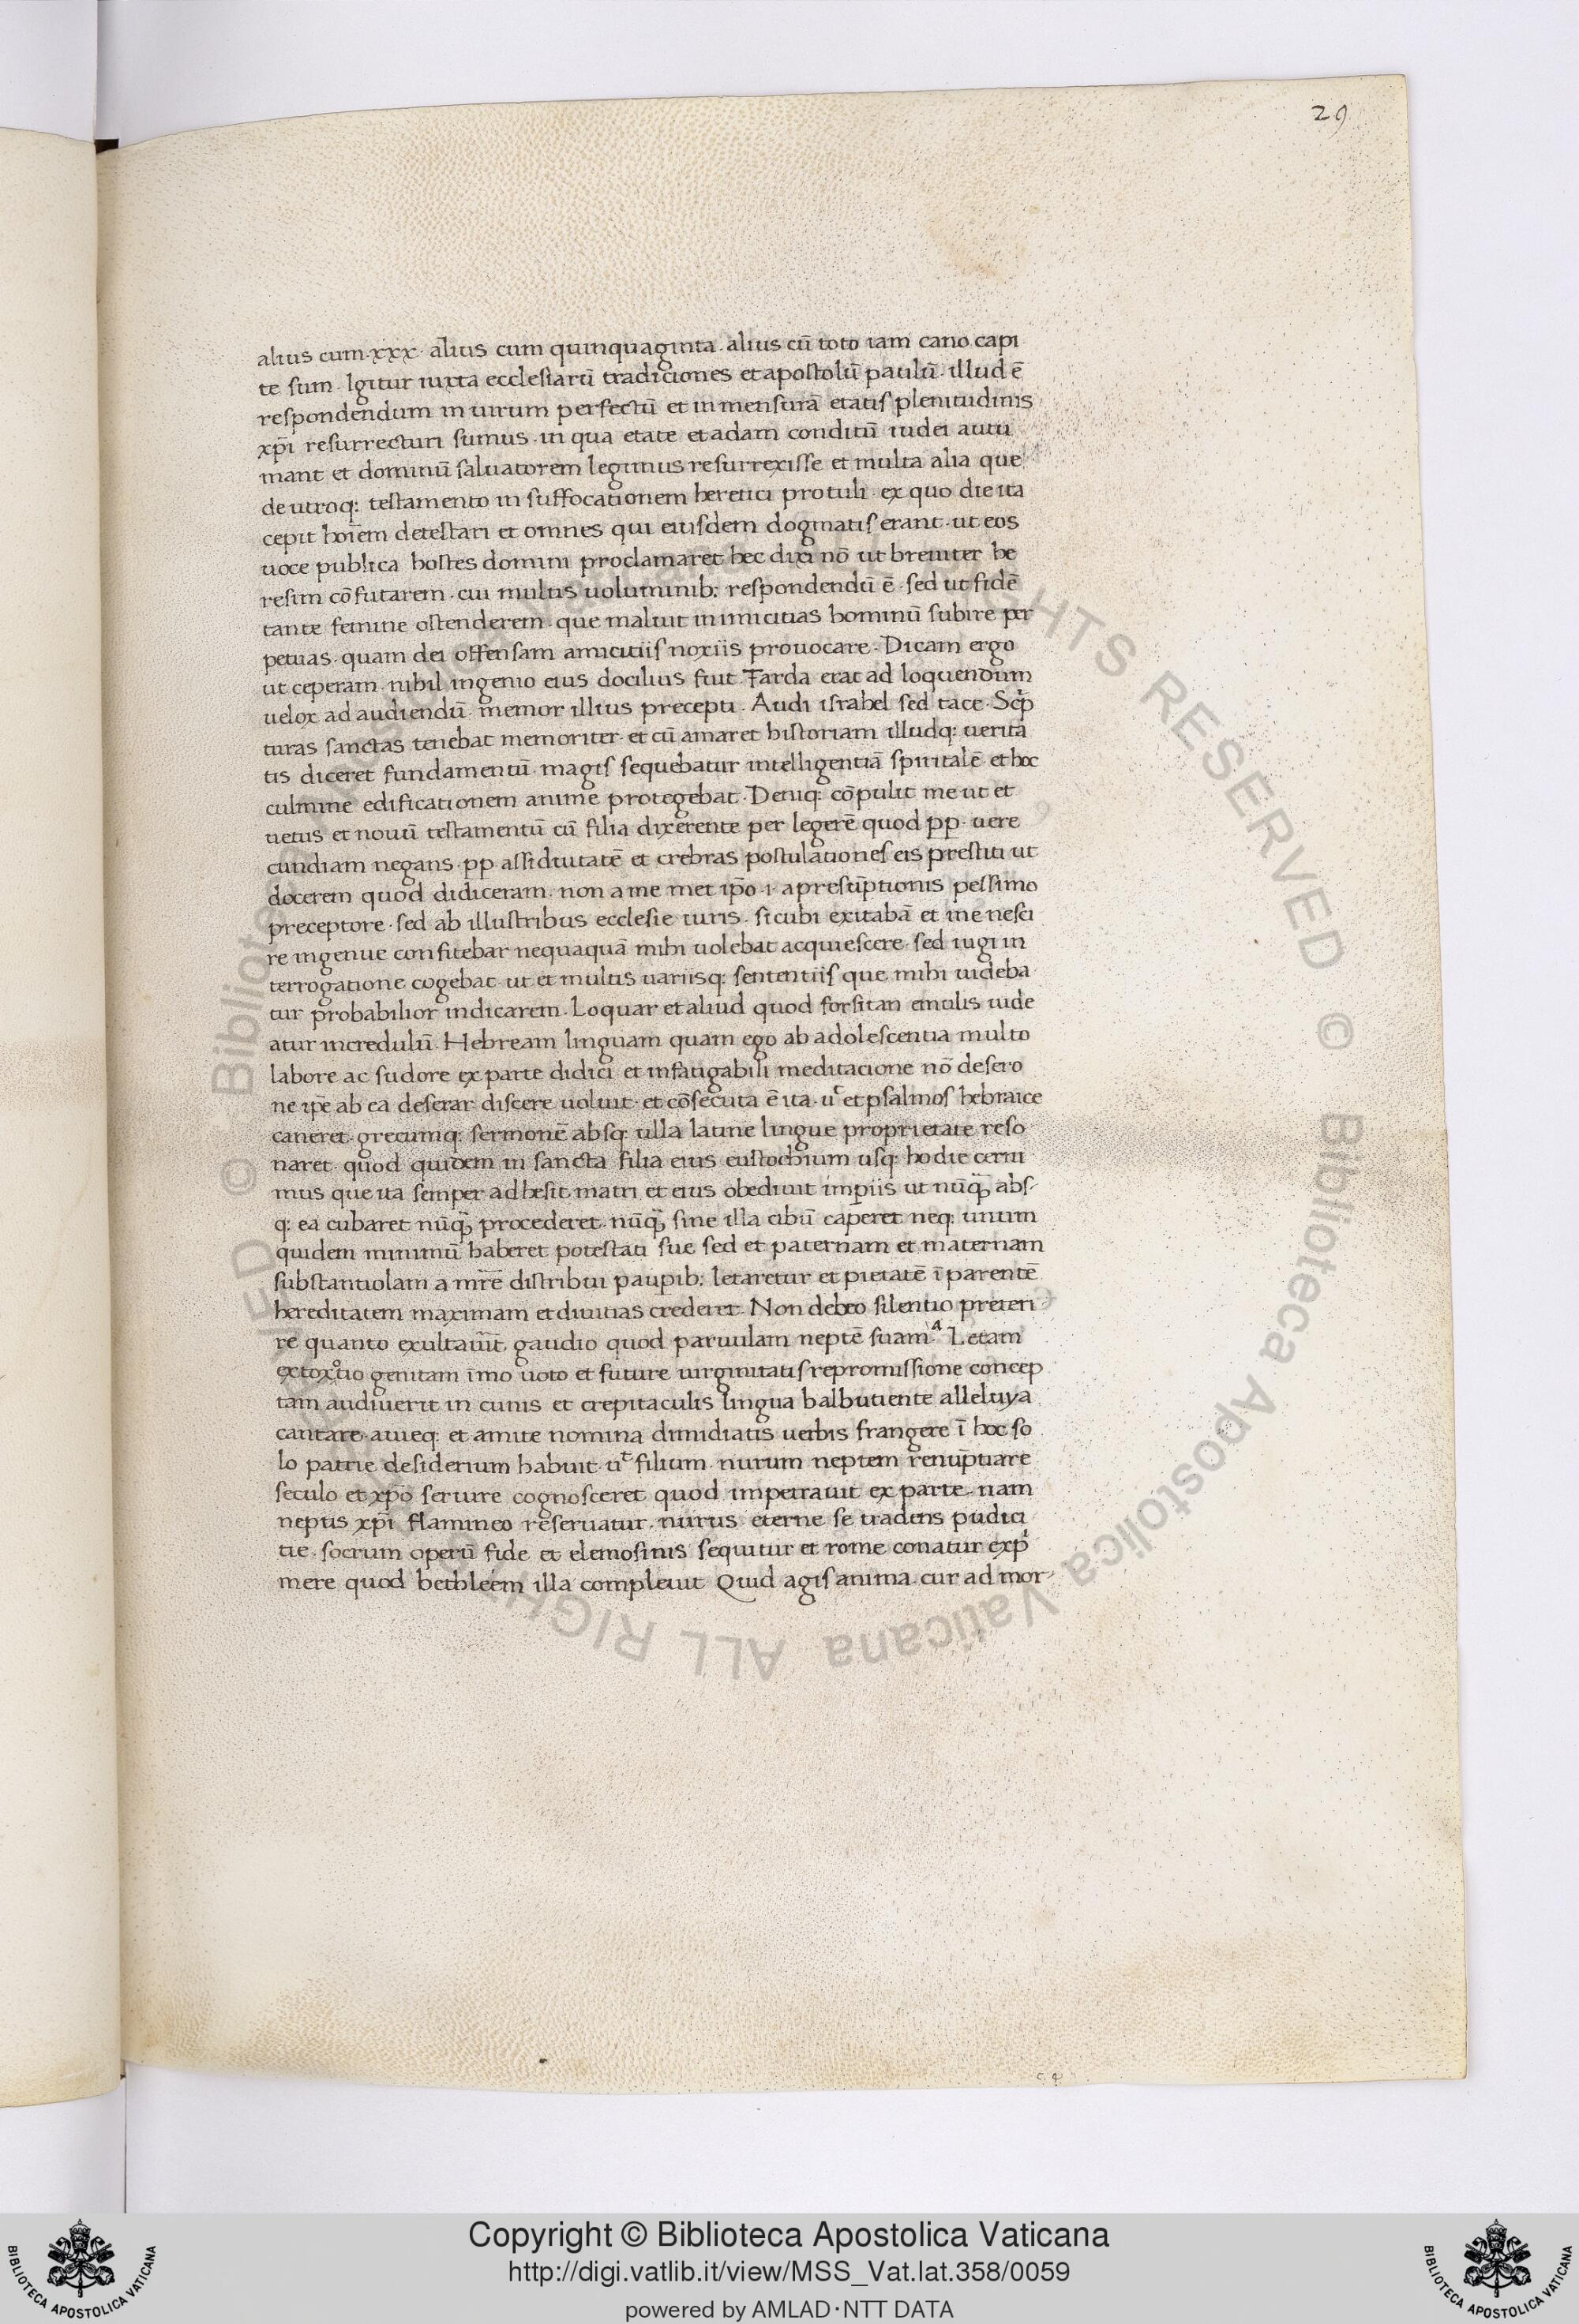 29
alius cum .xxx. alius cum quinquaginta. alius cū toto iam cano capi
te sum. Igitur iuxta ecclesiarū tradiciones et apostolū paulū. illud ē
respondendum in uirum perfectū et in mensurā etatis plenitudinis
xp̄i resurrecturi sumus. in qua etate et adam conditū iudei autu
mant et dominū saluatorem legimus resurrexisse et multa alia que
de utroq: testamento in suffocationem heretici protuli. ex quo die ita
cepit hoīem detestari et omnes qui eiusdem dogmatis erant. ut eos
uoce publica hostes domini proclamaret hec dixi nō ut breuiter he
resim cōfutarem. cui multis uoluminib: respondendū ē. sed ut fidē
tante femine ostenderem. que maluit inimicitias hominū subire per
petuas. quam dei offensam amicitiis noxiis prouocare. Dicam ergo
ut ceperam. nihil ingenio eius docilius fuit. Tarda erat ad loquendum
uelox ad audiendū. memor illius precepti. Audi israhel sed tace. Scp̄
turas sanctas tenebat memoriter. et cū amaret historiam illudq: uerita
tis diceret fundamentū. magis sequebatur intelligentiā spiritalē. et hoc
culmine edificationem anime protegebat. Deniq: cōpulit me ut et
uetus et nouū testamentū cū filia dixerente per legerē quod p̄p. uere
cundiam negans. p̄p assiduitatē et crebras postulationes eis prestiti ut
docerem quod didiceram. non a me met ip̄o .i. a presūptionis pessimo
preceptore. sed ab illustribus ecclesie uiris. sicubi exitabā et me nesci
re ingenue confitebar nequaquā mihi uolebat acquiescere. sed iugi in
terrogatione cogebat. ut et multis uariisq: sententiis que mihi uideba
tur probabilior indicarem. Loquar et aliud quod forsitan emulis uide
atur incredulū. Hebream linguam quam ego ab adolescentia multo
labore ac sudore ex parte didici et infatigabili meditacione nō desero
ne ip̄e ab ea deserar. discere uoluit. et cōsecuta ē ita. ut et psalmos hebraice
caneret. grecumq: sermonē absq: ulla latine lingue proprietate reso
naret. quod quidem in sancta filia eius eustochium usq: hodie cerni
mus que ita semper adhesit matri et eius obediuit imp̄iis ut nūq̄ abs
q: ea cubaret nūq̄ procederet. nūq̄ sine illa cibū caperet neq: unum
quidem minimū haberet potestati sue sed et paternam et maternam
substantiolam a mr̄e distribui paupib: letaretur et pietatē ī parentē
hereditatem maximam et diuitias crederet. Non debeo silentio preteri
re quanto exultauīt gaudio quod paruulam neptē suam A Letam
extoxotio genitam īmo uoto et future uirginitatis repromissione concep
tam audiuerit in cunis et crepitaculis lingua balbutiente alleluya
cantare. auieq: et amite nomina dimidiatis uerbis frangere ī hoc so
lo patrie desiderium habuit. ut filium. nurum neptem renūptiare
seculo et xp̄o seruire cognosceret quod impetrauit ex parte. nam
neptis xp̄i flamineo reseruatur. nurus. eterne se tradens pudici
tie. socrum operū fide et elemosinis sequitur et rome conatur exp̄
mere quod bethleem illa compleuit Quid agis anima. cur ad mor
Copyright © Biblioteca Apostolica Vaticana
http://digi.vatlib.it/view/MSS_Vat.lat.358/0059
powered by AMLAD·NTT DATA
BIBLIOTECA APOSTOLICA VATICANA
BIBLIOTECA APOSTOLICA VATICANA